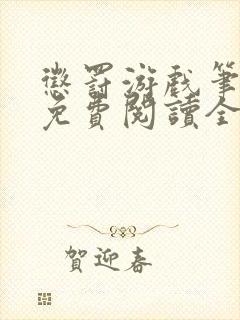 懲罰游戲筆
免費閱讀全
賀迎春